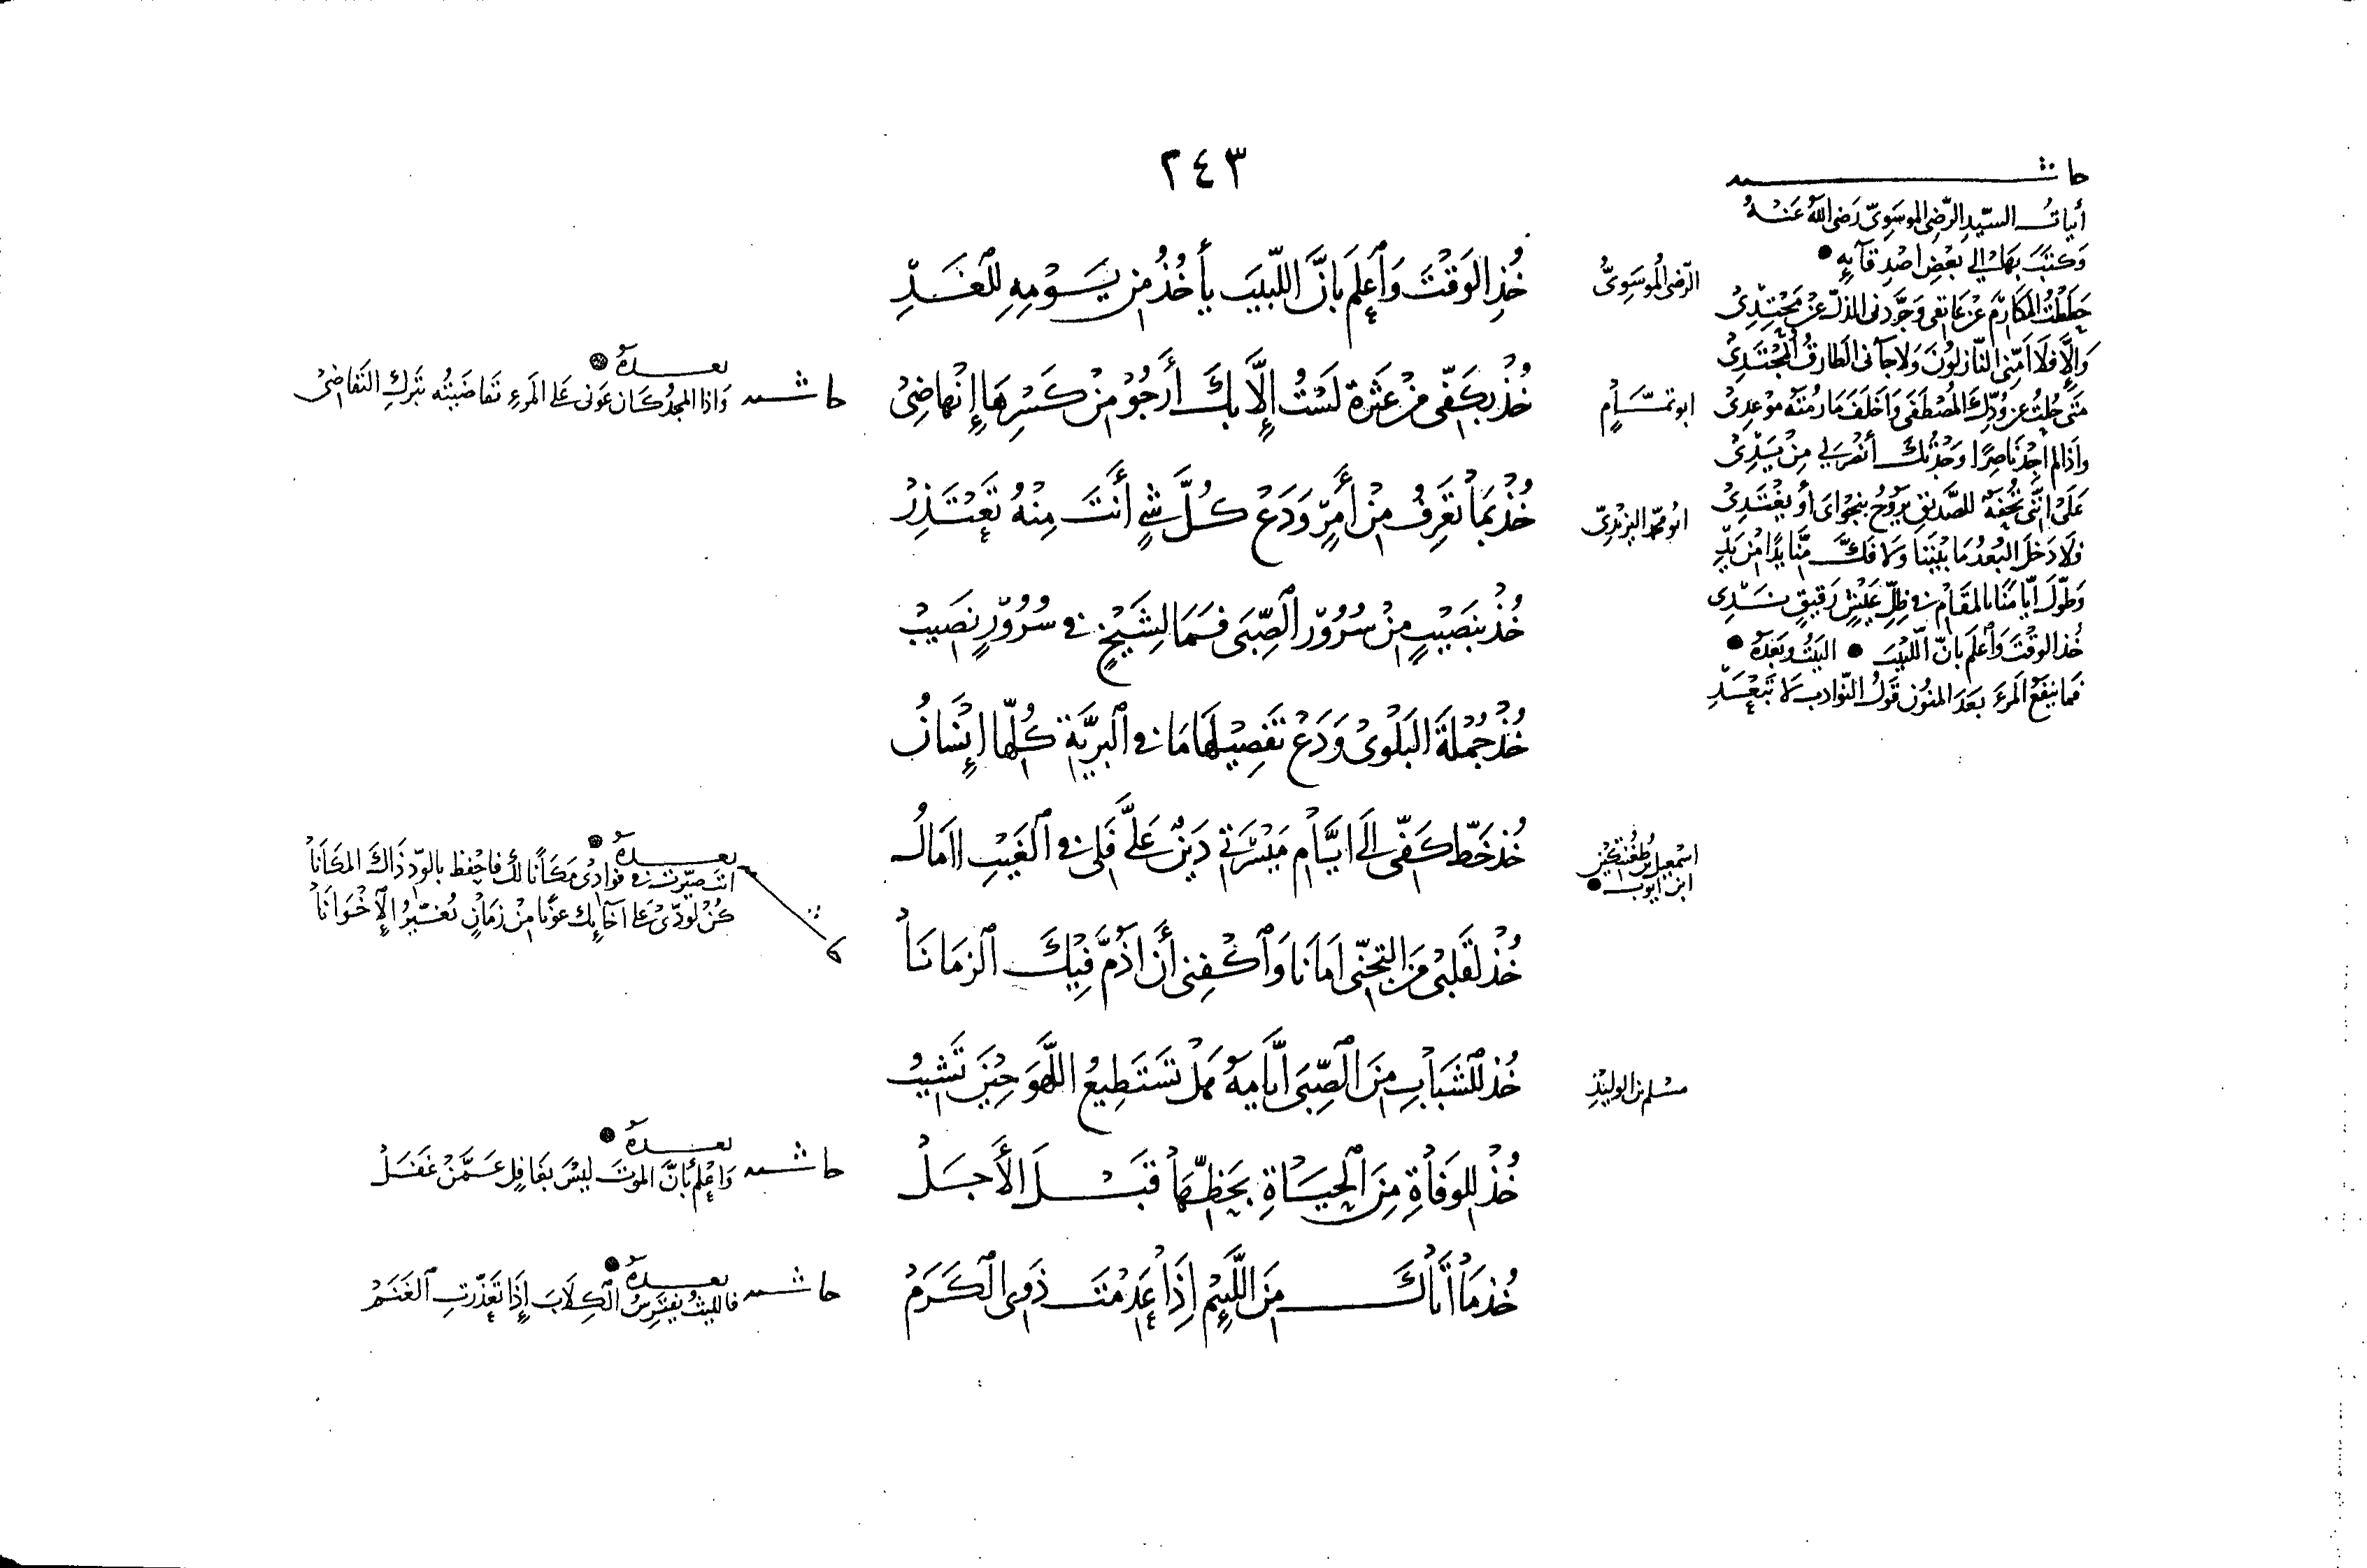 ٢٤٣
حاشية
أبيات السيّد الرّضي الموسويّ رَضى الله عَنهُ
وَكتبَ بهَا إلى بعضِ اصدقآئهِ
حَططتُ المكَارمَ عن عَاتقى وَجَرّدنى المذلّ عن مَحْتِدِى
وَإِلَّا فلَا أمَّنى النّازلونَ وَلا جآنى الطارقُ المُجْتَدِى
مَتَى حُلتُ عن وُدّكَ المُصْطَفَى وَاَخلَفَ مَا رُمْتَهُ موْعدِىْ
وَاذا لم أجدْ نَاصِرًا وَجَدْتُكَ أنصَرَ لي مِنْ يَدِىْ
عَلَى انّنى تُحْفَةٌ للصَّديقِ يَرُوحُ بنجْوَاىَ أو يغْتَدِىْ
فلَا دَخلَ البُعدُ مَا بَيْننَا وَلا فكَّ منّا يدًا مِنْ يَدِ
وَطوّلَ ايّامنَا بالمقَامِ في ظلِّ عَيشٍ رَقيقٍ نَدِى
خُذ الوَقْتَ وَاْعلم بأنّ اللّبيبَ ● البيت وبَعدَهُ ●
فمَا ينفَعُ المرءَ بعَدَ المنون قَولُ النّوادبِ لَا تَبْعُدِ
الرّضى المُوسَوىُّ
خُذِ الوَقْتَ وَاْعلَم بأنَّ اللّبيبَ يأخُذُ من يَوْمِهِ لِلغَدِ
ابو تمَّامٍ
خُذْ بكَفّى مِنْ عَثرة لَسْتُ إِلَّا بكَ أَرجُوْ مِنْ كَسْرِهَا إِنْهَاضِىْ
حاشية
بعدهُ ●
وَاذا المجدُ كَان عَونى عَلى المَرءِ تقَاضَيتُه بتَركِ التَقاضِىْ
ابُو محمّد اليزيدىّ
خُذْ بمَا تَعرِفُ مِنْ أَمرٍ وَدَعْ كُلَّ شىءٍ أَنتَ مِنْهُ تَعْتَذِرْ
خُذْ بنَصيْبٍ مِنْ سُرُوْرِ الصِّبَى فمَا لِشَيْخٍ في سُرُوْرٍ نَصيبْ
خُذْ جُمْلَةَ البَلْوىْ وَدَعْ تَفصِيْلهَا مَا في البرِيَّةِ كُلّها إِنسَانُ
اسْمعيل بن طُغتكين
ابن ايّوب ●
خُذ خَطّ كَفّى إِلَى ايَّامِ مَيْسَرَتى دَيْنٌ عَلَىَّ فَلى في الغَيْبِ اامَالُ
خُذ لقَلبىْ مَن التجنّى اَمَانا وَاْكْفِنى أَن اَذُمَّ فِيْكَ الزمَانَا
بعدهُ ●
انتَ صيّرتَ في فوَادِىْ مَكَانًا لكَ فَاحفظ بالودّ ذَاكَ المكَانَا
كُنْ لودّىْ عَلى آخَائِكَ عوْنًا مِنْ زمَانٍ يُغَيّرُ الإِخْوَانَا
مسْلم بن الوليْدِ
خُذ لِلشَبَابِ مِنَ الصِّبَى اَيَّامَهُ هَلْ تَسْتَطِيعُ اللَّهوَ حِيْنَ تَشيْبُ
خُذْ لِلوَفَاةِ مِنَ الحَيَاةِ بحَظِّهَا قَبْلَ الأَجَلْ
حاشية
بعدهُ ●
وَاعْلم بأنَّ الموتَ ليْسَ بغَافِلٍ عَمَّنْ غَفَلْ
خُذ مَا أتَاكَ مِنَ اللَّئِيْمِ إِذَا عَدِمْتَ ذَوى الكَرَمْ
حاشية
بعدهُ ●
فالليثُ يفتَرِسُ الكِلَابَ إِذَا تَعَذّرتِ الغَنَمْ